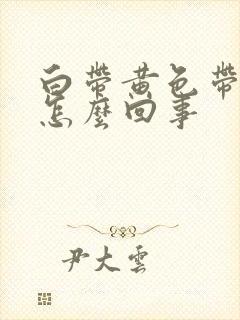 白帶黃色帶
怎麼回事
尹大雲